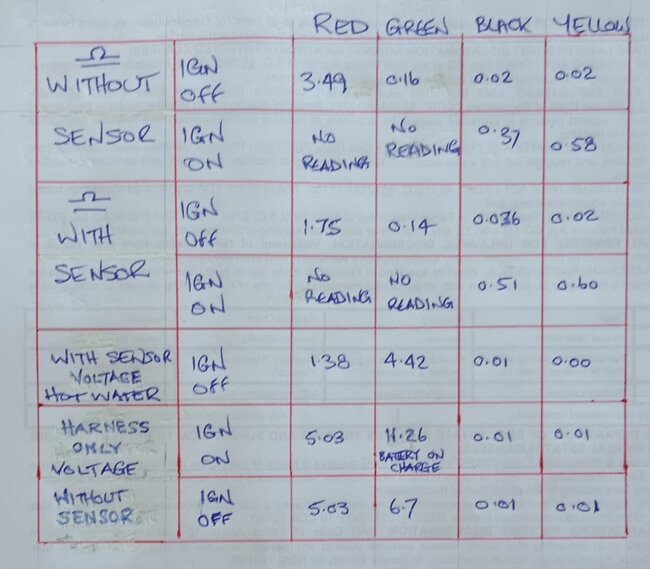 RED GREEN BLACK YELLOW
Ω WITHOUT SENSOR
IGN OFF 3.49 0.16 0.02 0.02
IGN ON NO READING NO READING 0.37 0.58
Ω WITH SENSOR
IGN OFF 1.75 0.14 0.036 0.02
IGN ON NO READING NO READING 0.51 0.60
WITH SENSOR VOLTAGE HOT WATER
IGN OFF 1.38 4.42 0.01 0.00
HARNESS ONLY VOLTAGE
IGN ON 5.03 11.26 BATTERY ON CHARGE 0.01 0.01
WITHOUT SENSOR
IGN OFF 5.03 6.7 0.01 0.01